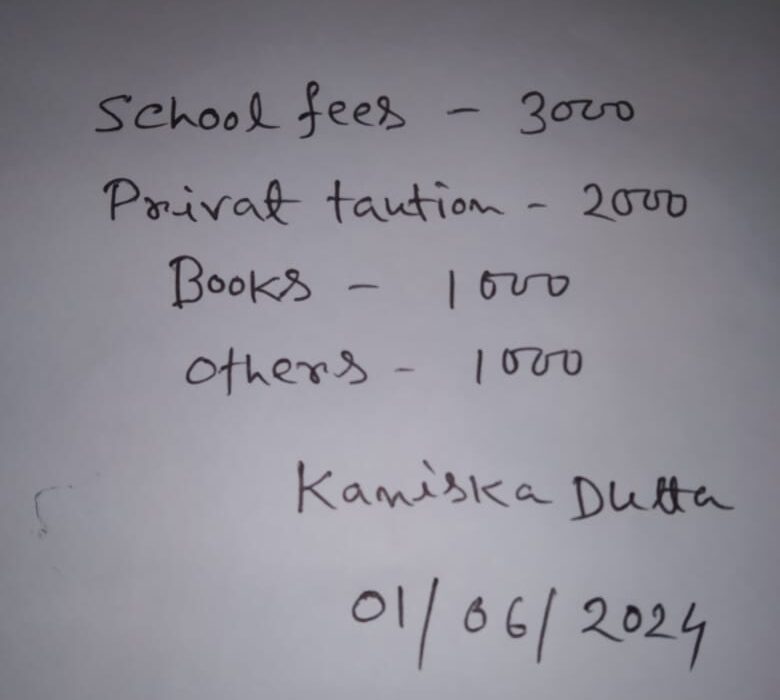 School fees - 3000
Privat taution - 2000
Books - 1000
Others - 1000
Kaniska Dutta
01/06/2024